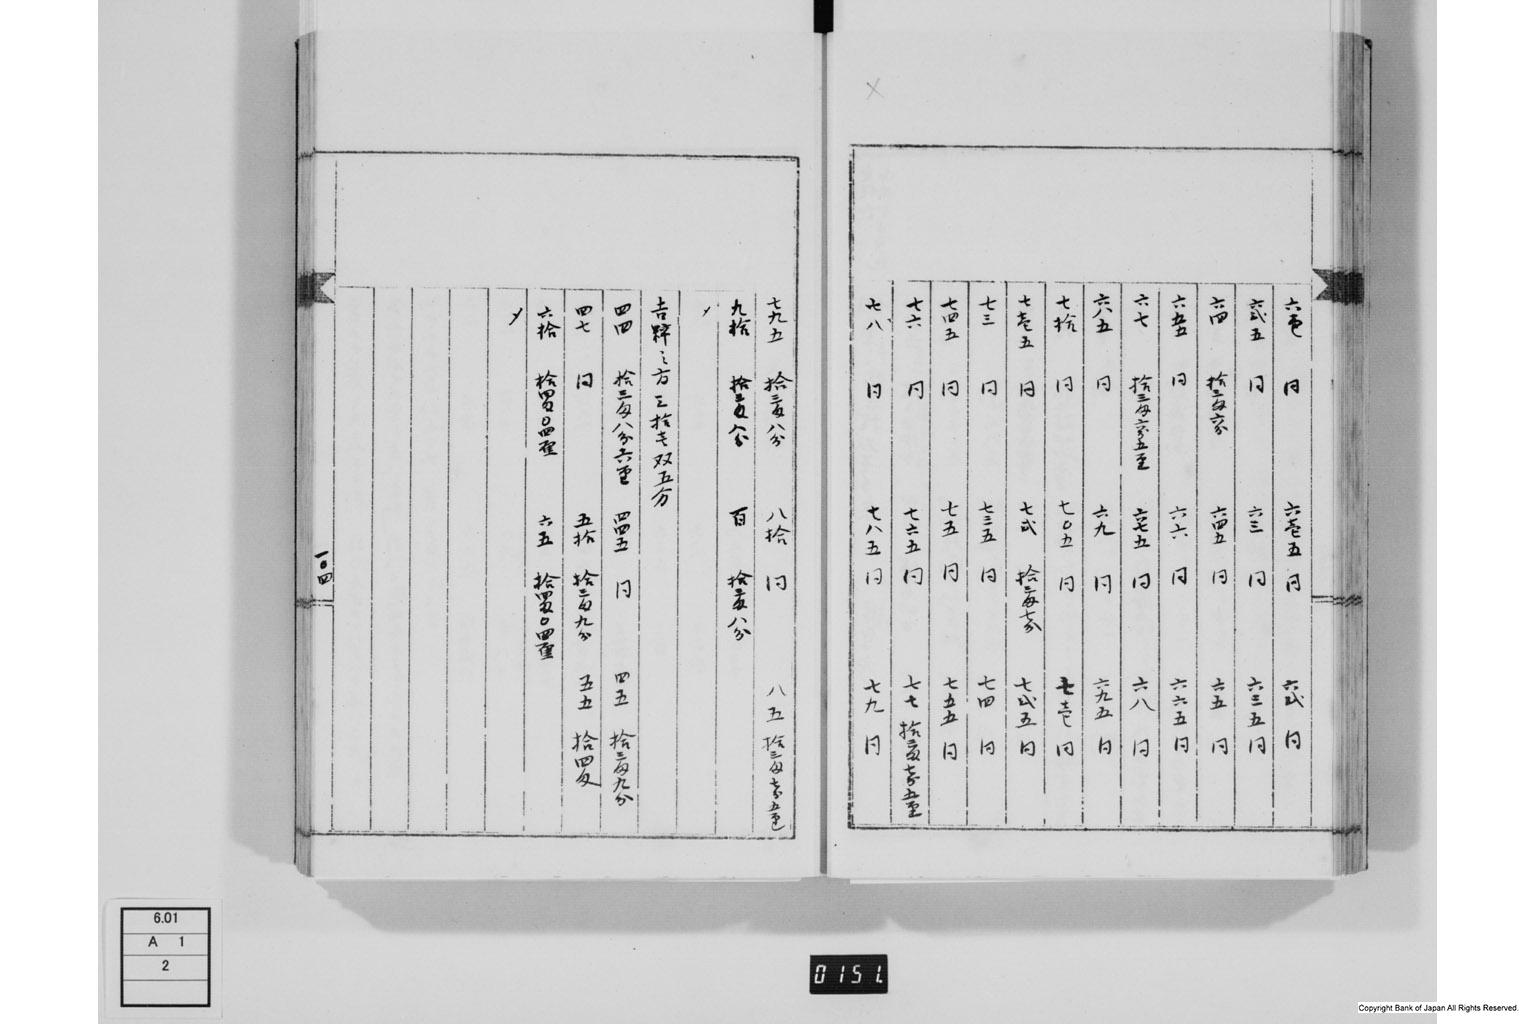 六壱 同 六壱五 同 六弐 同
六弐五 同 六三 同 六三五 同
六四 拾三匁六分 六四五 同 六五 同
六五五 同 六六 同 六六五 同
六七 拾三匁六分五厘 六七五 同 六八 同
六八五 同 六九 同 六九五 同
七拾 同 七〇五 同 七壱 同
七壱五 同 七弐 拾三匁七分 七弐五 同
七三 同 七三五 同 七四 同
七四五 同 七五 同 七五五 同
七六 同 七六五 同 七七 拾三匁七分五厘
七八 同 七八五 同 七九 同
七九五 拾三匁八分 八拾 同 八五 拾三匁七分五厘
九拾 拾三匁八分 百 拾三匁八分
〆
之方三拾七双五分
四四 拾三匁八分六厘 四四五 同 四五 拾三匁九分
四七 同 五拾 拾三匁九分 五五 拾四匁
六拾 拾四匁〇四厘 六五 拾四匁〇四厘
〆
一〇四
6.01
A 1
2
0151.
Copyright Bank of Japan All Rights Reserved.